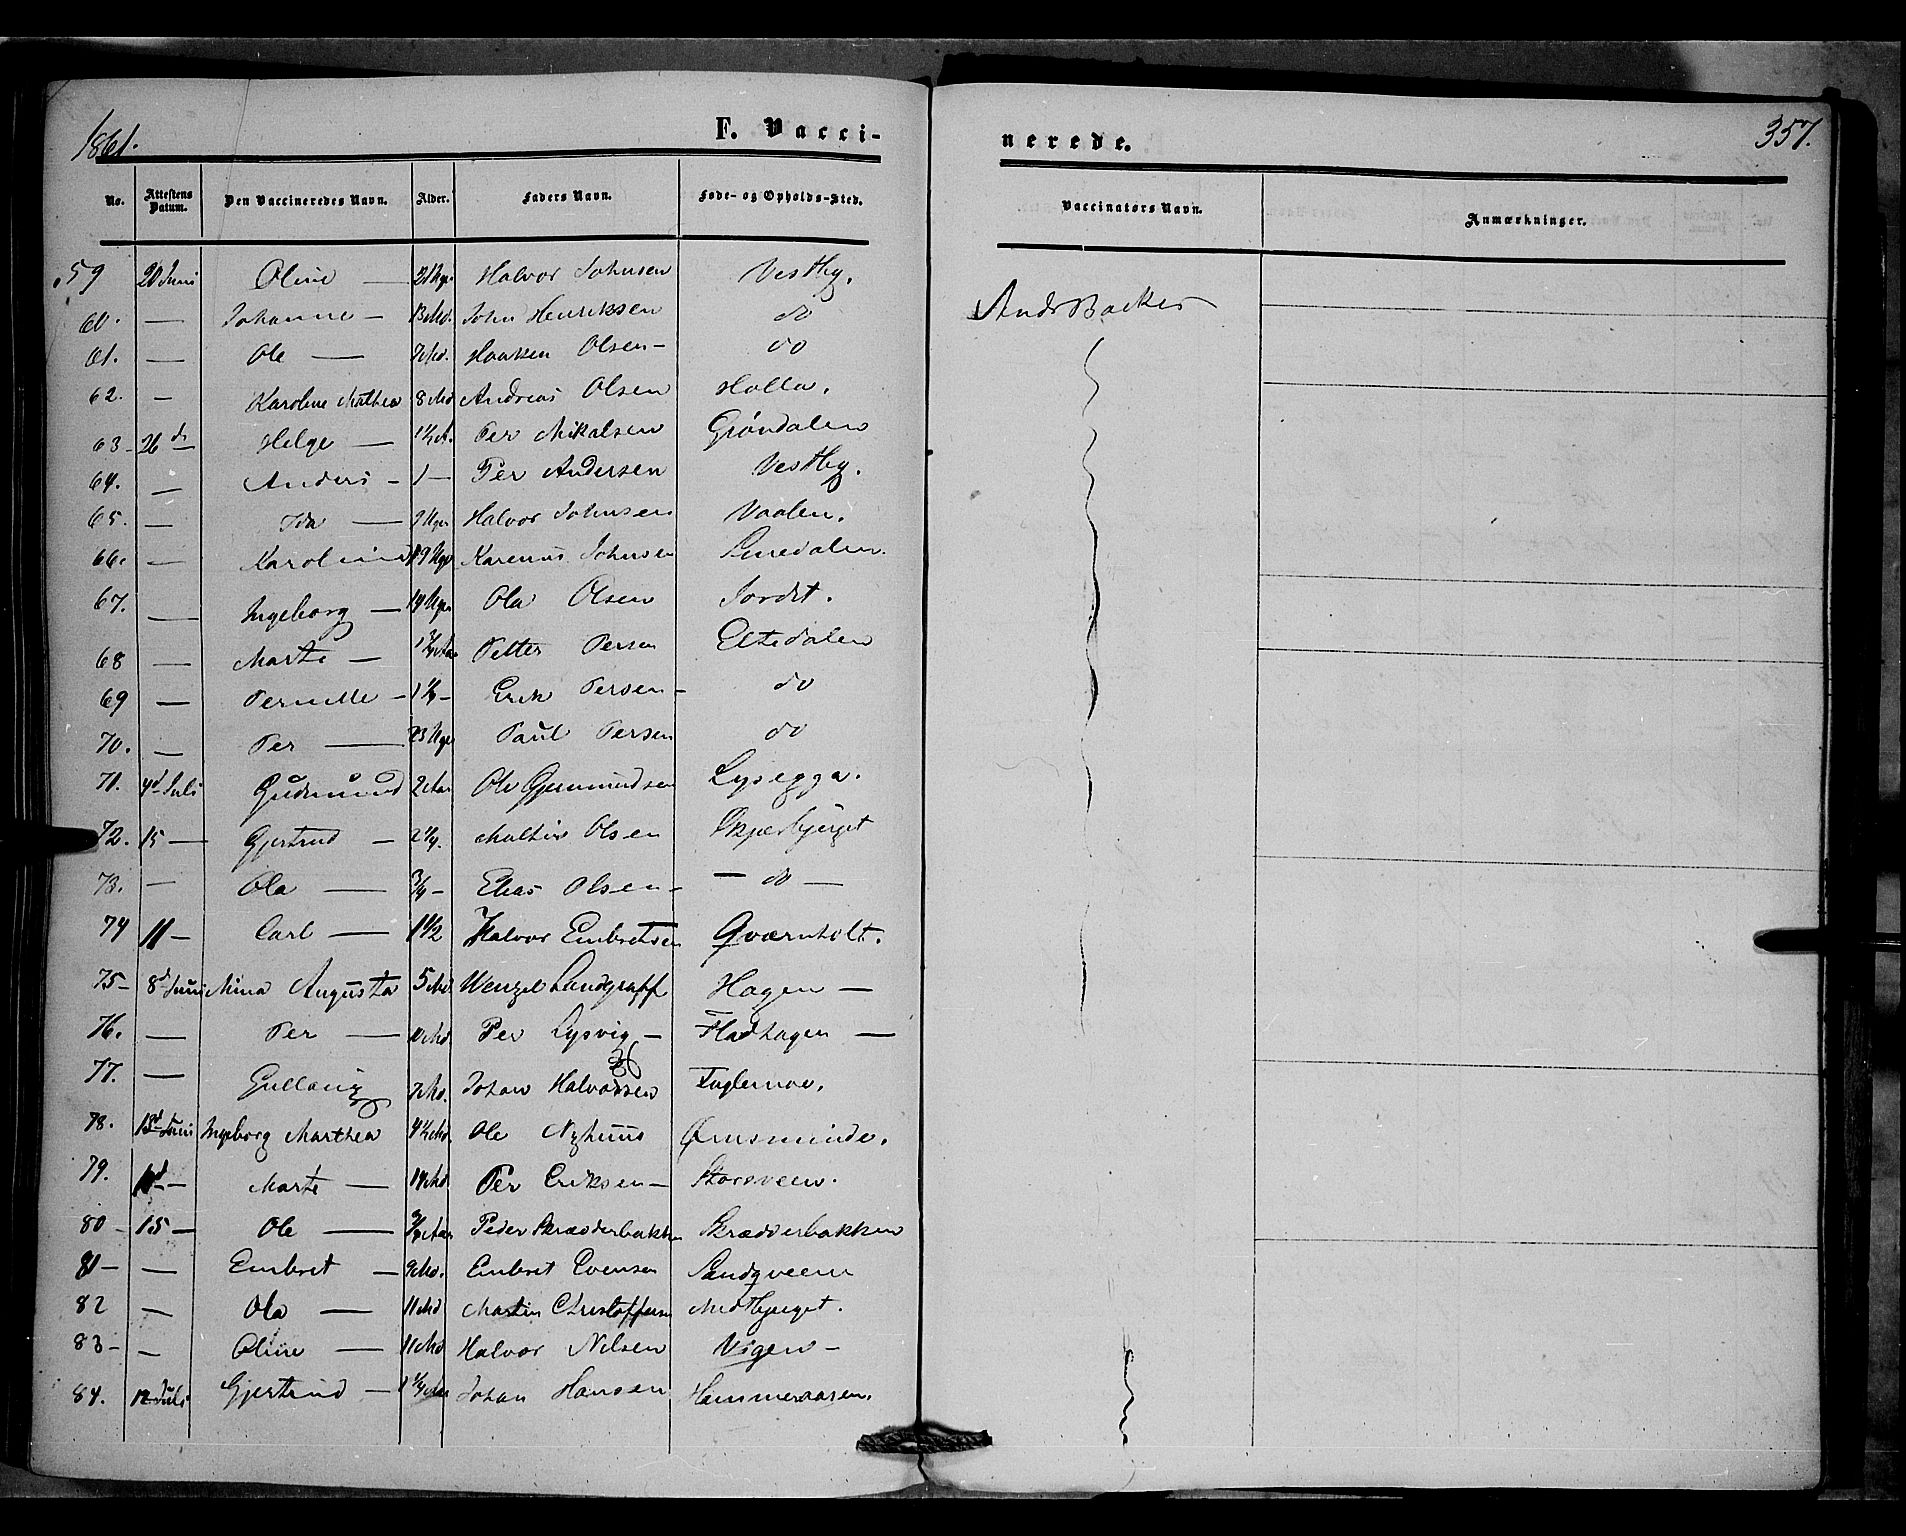 1861.
F. Vacci-
nerede.
357.
No. Attestens Datum. Den Vaccineredes Navn. Alder. Faders Navn. Føde- og Opholds-Sted. Vaccinators Navn. Anmærkninger.
59 20 Juni Oline — 21 Uger Halvor Johnsen Vestby. And. Backer
60. — Johanne — 13 Md. John Henriksen do
61. — Ole — 7 Md. Haaken Olsen — do
62. — Karoline Mathea 8 Md Andreas Olsen Holla.
63 — 26 d — Helge — 1½ A. Per Mikalsen Grøndalen
64. — Anders — 1 — Per Andersen Vestby.
65. — Ida — 9 Uger Halvor Johnsen Vaalen.
66. — 19 Uger Karenus Johnsen
67. — Ingeborg — 19 Uger Ola Olsen Jordet.
68 — Marte — Petter Persen Eltedalen
69 — Pernille — Erik Persen — do
70. — Per — 23 Uger Paul Persen do
71. 4d Juli Gudmund 2 Aar Ole Gjermundsen Lysegga.
72. 15 — Gjertrud — 2¼. Olsen Skjærbjerget
73. — Ola — ¾ — Elias Olsen — — do —
74 11 — Carl — 1½ Halvor Embretsen Qværnholt.
75 — 8d Juni Mina Augusta 5 Md Wenzel Landgraff Hagen —
76. — Per — 10 Md. Per Lysvig — Fladhagen —
77. — Gullaug 7 Md. Johan Halvorsen Fuglemoe.
78. 13d Juni Ingeborg Marthea 4½ Md. Ole Nyhuus Ørnsminde.
79. — Marte — 14 Md. Per Eriksen — Storsveen.
80 — 15 — Ole — Peder Skrædderbakken Skrædderbakken
81 — — Embret — 9 Md. Embret Evensen Sandqveen
82 — Ola — 11 Md Martin Christoffersen Midtbjerget.
83 — — Oline — 11 Md Halvor Nilsen Vigen —
84. 12 Juli Gjertrud — 1¼ Aar Johan Hansen Hammeraasen.